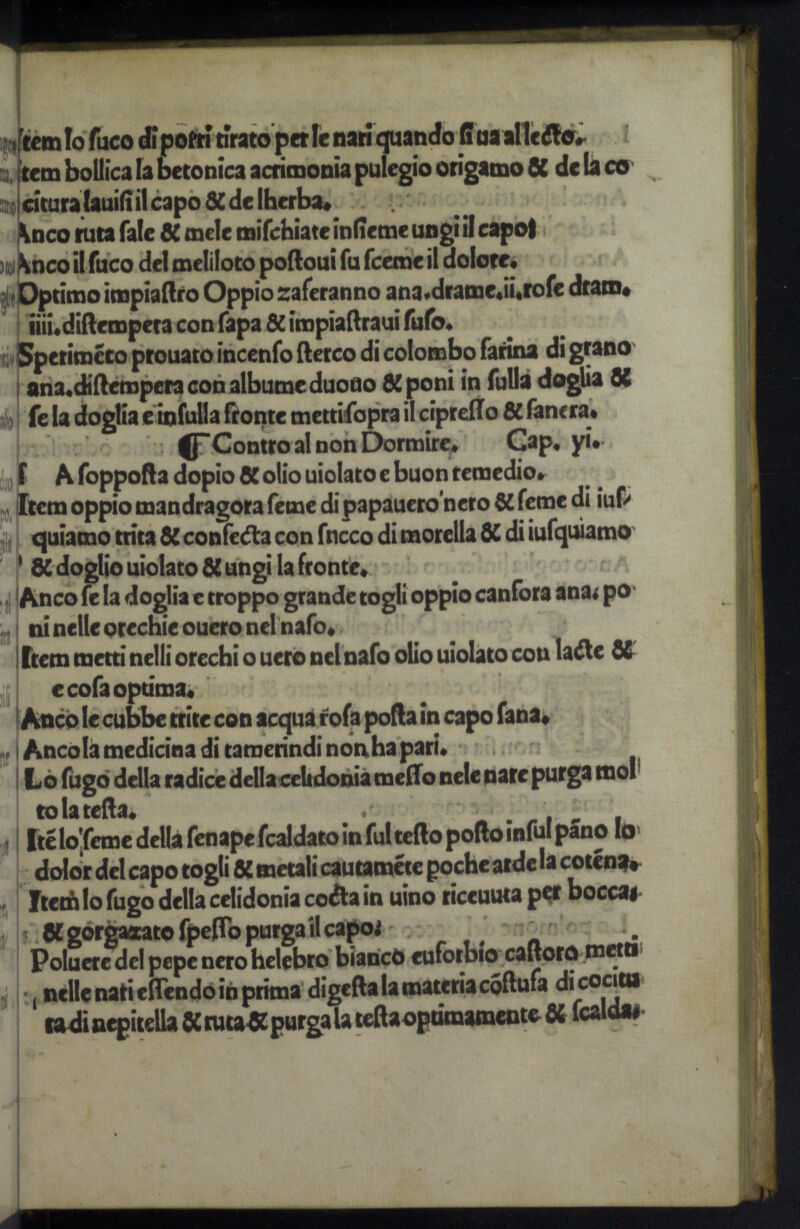 Item lo ſuco di porri tirato per le nari quando ſi ua al lecto.
Item bollica la betonica acrimonia pulegio origamo & de la co
citura lauiſi il capo & de lherba.
Anco ruta ſale & mele miſchiate inſieme ungi il capo:
Anco il ſuco del meliloto poſtoui ſu ſceme il dolore.
Optimo impiaſtro Oppio zaferanno ana.drame.ii.roſe dram.
iiii.diſtempera con ſapa & impiaſtraui ſuſo.
Sperimēto prouato incenſo ſterco di colombo farina di grano
ana.diſtempera con albume duouo & poni in ſulla doglia &
ſe la doglia e inſulla fronte mettiſopra il cipreſſo & ſanera.
Contro al non Dormire. Cap. yi.
A ſoppoſta dopio & olio uiolato e buon remedio.
Item oppio mandragora ſeme di papauero nero & ſeme di iuſ
quiamo trita & confecta con ſucco di morella & di iuſquiamo
& doglio uiolato & ungi la fronte.
Anco ſe la doglia e troppo grande togli oppio canfora ana: po
ni nelle orecchie ouero nel naſo.
Item metti nelli orechi o uero nel naſo olio uiolato con lacte &
e coſa optima.
Anco le cubbe trite con acqua roſa poſta in capo ſana.
Anco la medicina di tamerindi non ha pari.
Lo ſugo della radice della celidonia meſſo nele nare purga mol
to la teſta.
Itē lo ſeme della ſenape ſcaldato in ſul teſto poſto inſul pāno lo
dolor del capo togli & metali cautamēte poche arde la cotēna.
Item lo ſugo della celidonia cocta in uino riceuuta per bocca:
& gorgazato ſpeſſo purga il capo:
Poluere del pepe nero helebro bianco euforbio caſtoro metti
nelle nari eſſendo in prima digeſta la materia cōſtufa di cocitu
ra di nepitella & ruta & purga la teſta optimamente & ſcalda: